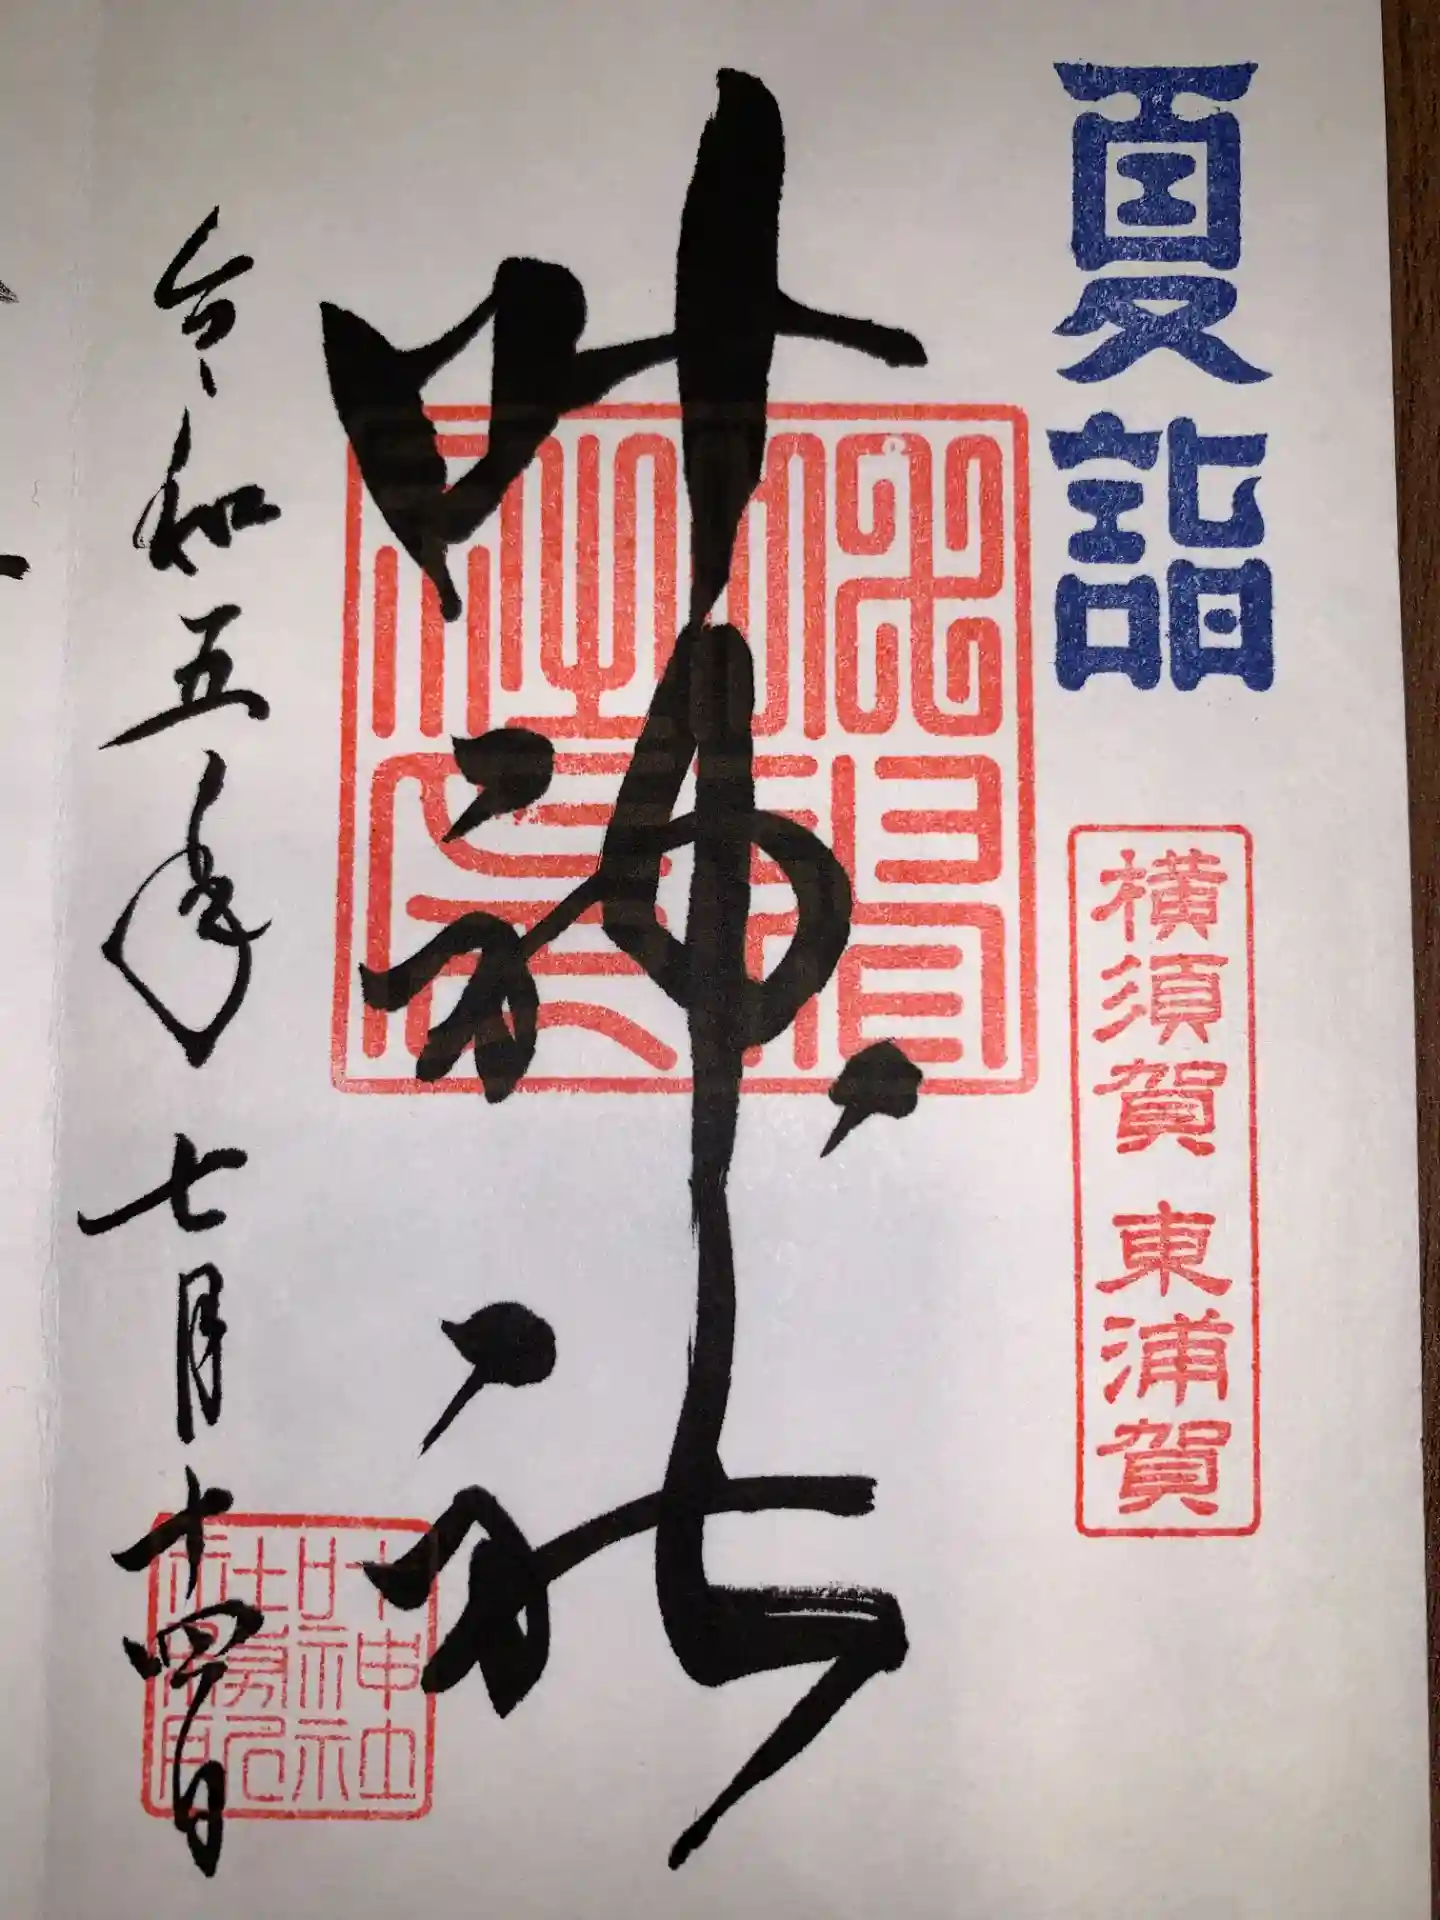 夏詣
横須賀 東浦賀
叶神社
令和五年七月十四日
叶神社